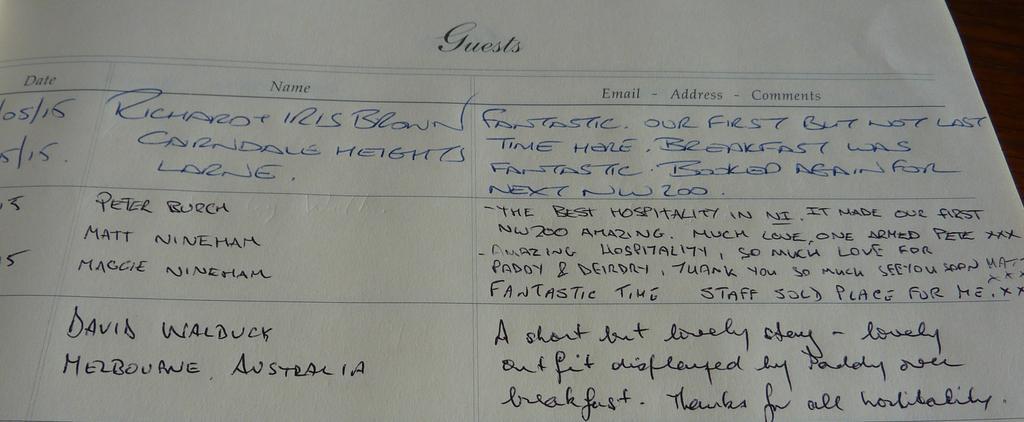 Guests
Date Name Email - Address - Comments
/05/15 RICHARD + IRIS BROWN FANTASTIC. OUR FIRST BUT NOT LAST
5/15. CAIRNDALE HEIGHTS TIME HERE. BREAKFAST WAS
LARNE. FANTASTIC. BOOKED AGAIN FOR
NEXT NW200.
5 PETER BURCH - THE BEST HOSPITALITY IN NI. IT MADE OUR FIRST
NW200 AMAZING. MUCH LOVE, ONE ARMED PETE XXX
MATT NINEHAM - AMAZING HOSPITALITY, SO MUCH LOVE FOR
5 MAGGIE NINEHAM PADDY & DEIRDRY, THANK YOU SO MUCH SEE YOU SOON MATT
XXX
FANTASTIC TIME STAFF SOLD PLACE FOR ME. XX
DAVID WALDUCK A short but lovely stay - lovely
MELBOURNE, AUSTRALIA outfit displayed by Paddy over
breakfast. Thanks for all hospitality.